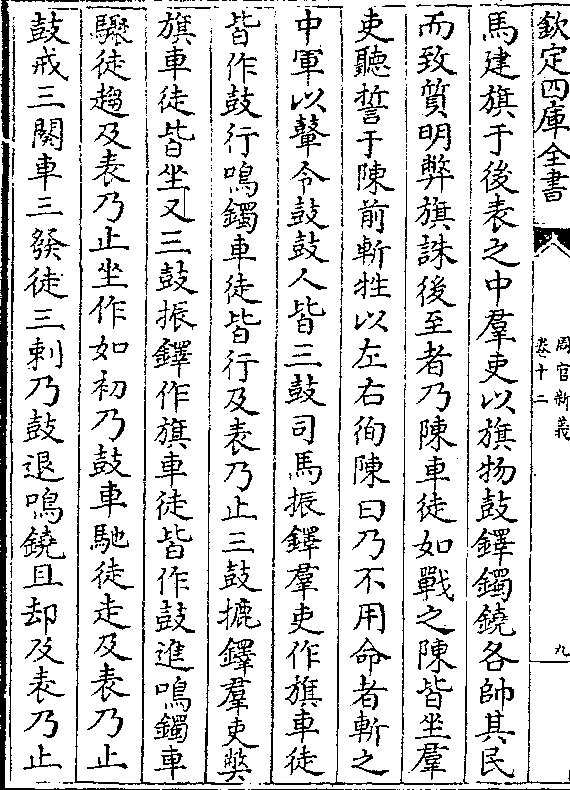 欽定四庫全書
周官新義
卷十二
九
馬建旗于後表之中羣吏以旗物鼓鐸鐲鐃各帥其民
而致質明弊旗誅後至者乃陳車徒如戰之陳皆坐羣
吏聽誓于陳前斬牲以左右徇陳曰乃不用命者斬之
中軍以鼙令鼓鼓人皆三鼓司馬振鐸羣吏作旗車徒
皆作鼓行鳴鐲車徒皆行及表乃止三鼓摝鐸羣吏弊
旗車徒皆坐又三鼓振鐸作旗車徒皆作鼓進鳴鐲車
驟徒趨及表乃止坐作如初乃鼓車馳徒走及表乃止
鼓戒三闋車三發徒三刺乃鼓退鳴鐃且却及表乃止